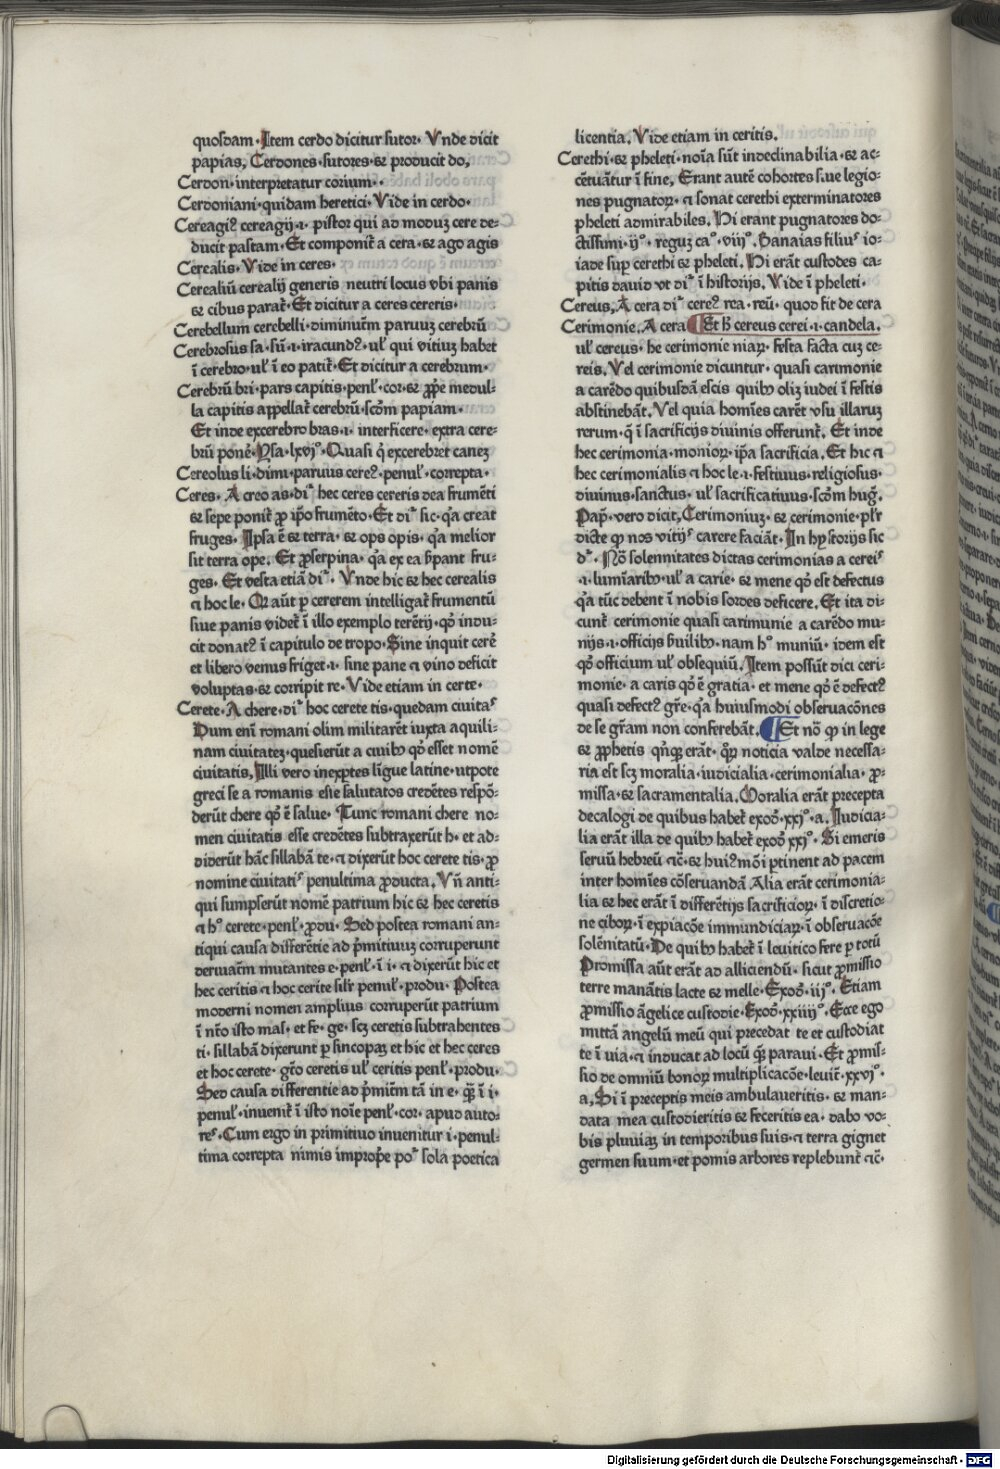 quosdam· Item cerdo dicitur sutor· Vnde dicit
papias, Cerdones·sutores·⁊ producit do,
Cerdon·interpretatur corium··
Cerdoniani·quidam heretici· Vide in cerdo·
Cereagiꝰ cereagij·i· pistor qui ad moduꝫ cere de⸗
ducit pastam· Et componit̄ a cera·⁊ ago agis
Cerealis· Vide in ceres·
Cerealiū cerealij generis neutri locus vbi panis
⁊ cibus parat̄· Et dicitur a ceres cereris·
Cerebellum cerebelli·diminutiū paruuꝫ cerebrū
Cerebrosus sa·sū·i·iracundꝰ·ul̛ qui vitiuꝫ habet
ī cerebro·ul̛ ī eo patit̄· Et dicitur a cerebrum·
Cerebrū bri·pars capitis·penl̛·cor·⁊ ꝓp̄e medul⸗
la capitis appellat̄ cerebrū·scd̄m papiam·
Et inde excerebro bras·i· interficere·extra cere⸗
brū pone᷒· Ysa·lxvi°· Quasi q̄ excerebret canez
Cereolus li·dimi·paruus cereꝰ·penul̛·correpta·
Ceres· A creo as·di᷒ hec ceres cereris dea frumēti
⁊ sepe ponit̄ ꝓ ip̄o frumēto· Et di᷒ sic·q̛a creat
fruges· Ipsa ē ⁊ terra·⁊ ops opis·q̛a melior
fit terra ope· Et ꝓserpina·q̛a ex ea h̄pant fru⸗
ges· Et vesta etiā di᷒· Vnde hic ⁊ hec cerealis
⁊ hoc le· Qꝛ aūt ꝑ cererem intelligat̄ frumentū
siue panis videt̄ ī illo exemplo terētij·qd̛ indu⸗
cit donatꝰ ī capitulo de tropo· Sine inquit cere᷒
et libero venus friget·i·sine pane ⁊ vino deficit
voluptas·⁊ corripit re· Vide etiam in certe·
Cerete· A chere·di᷒ hoc cerete tis·quedam ciuitaˢ
Dum eni᷒ romani olim militarēt iuxta aquili⸗
nam ciuitatez·quesierūt a ciuibꝰ qd̛ esset nomē
ciuitatis, Illi vero inexꝑtes ligue latine·utpote
greci se a romanis esse salutatos credētes respō⸗
derūt chere qd̛ ē salue· Tunc romani chere no⸗
men ciuitatis esse credētes subtraxerūt h·et ad⸗
diderūt hāc sillabā te·⁊ dixerūt hoc cerete tis·ꝓ
nomine ciuitatiˢ penultima ꝓducta, Vn̄ anti⸗
qui sumpserūt nomē patrium hic ⁊ hec ceretis
⁊ h° cerete·penl̛·ꝓdu· Sed postea romani an⸗
tiqui causa differētie ad p̄mitiuuꝫ corruperunt
deriuatū mutantes e·penl̛·ī i·⁊ dixerūt hic et
hec ceritis ⁊ hoc cerite silr̄ penul̛·produ· Postea
moderni nomen amplius corruperūt patrium
ī nr̄o isto mas·et fe·ge·scꝫ ceretis subtrahentes
ti·sillabā dixerunt ꝑ sincopaꝫ et hic et hec ceres
et hoc cerete·gt̄o ceretis ul̛ ceritis penl̛·produ·
Sed causa differentie ad p̄mitiū tā in e·qꝫ̄ ī i·
penul̛·inuenit̄ ī isto noīe penl̛·cor·apud auto⸗
reˢ· Cum ergo in primitiuo inuenitur i·penul⸗
tima correpta nimis impropˢe po᷒ sola poetica
licentia, Vide etiam in ceritis,
Cerethi·⁊ pheleti·noīa sūt indeclinabilia·⁊ ac⸗
cētuātur ī fine, Erant autē cohortes siue legio⸗
nes pugnatoꝝ·⁊ sonat cerethi exterminatores
pheleti admirabiles, Hi erant pugnatores do⸗
ctissimi·ij°·reguꝫ ca°·viij°· Banaias filiuˢ io⸗
iade suꝑ cerethi ⁊ pheleti, Hi erāt custodes ca⸗
pitis dauid vt di᷒ ī historijs, Vide ī pheleti·
Cereus, A cera di᷒ cereꝰ rea·reū·quod fit de cera
Cerimonie, A cera ¶Et h̄ cereus cerei·i·candela,
ul̛ cereus·he cerimonie niaꝝ·festa facta cuꝫ ce⸗
reis, Vel cerimonie dicuntur·quasi carimonie
a carēdo quibusdā escis quibꝰ oliꝫ iudei ī festis
abstinebāt, Vel quia homīes carēt vsu illaruꝫ
rerum·q̄ ī sacrificijs diuinis offerunt̄, Et inde
hec cerimonia·monioꝝ·ip̄a sacrificia, Et hic ⁊
hec cerimonialis ⁊ hoc le·i·festiuus·religiosus·
diuinus·sanctus·ul̛ sacrificatiuus·scd̄m hug̛,
Pap̛·vero dicit, Cerimoniuꝫ·⁊ cerimonie·pl̛r
dicte ꝙ nos vitijˢ carere faciāt· In hystorijs sic
d᷒· Nō solennitates dictas cerimonias a cereiˢ
·i·lumīaribꝰ·ul̛ a carie·⁊ mene qd̛ est defectus
q̛a tūc debent ī nobis sordes deficere, Et ita di⸗
cunt̄ cerimonie quasi carimunie a carēdo mu⸗
nijs·i·officijs ẜuilibꝰ·nam h° muniū·idem est
qd̛ officium ul̛ obsequiū, Item possūt dici ceri⸗
monie·a caris qd̛ ē gratia·et mene qd̛ ē defectꝰ
quasi defectꝰ gr̄e·q̛a huiusmodi obseruacōnes
de se gr̄am non conferebāt, ¶Et nō ꝙ in lege
⁊ ꝓphetis qn̛qꝫ erāt·qͦꝝ noticia valde necessa⸗
ria est scꝫ moralia·iudicialia·cerimonialia·ꝓ⸗
missa·⁊ sacramentalia, Moralia erāt precepta
decalogi de quibus habet̄ exod̛·xx°·a, Iudicia⸗
lia erāt illa de quibꝰ habet̄ exod̛ xxj°· Si emeris
seruū hebreū ⁊c̄·⁊ huiꝰmōi ꝑtinent ad pacem
inter homīes cōseruandā Alia erāt cerimonia⸗
lia ⁊ hec erāt ī differētijs sacrificioꝝ·ī discretio⸗
ne ciboꝝ·ī expiacōe immundiciaꝝ·ī obseruacōe
solēnitatū· De quibꝰ habet̄ ī leuitico fere ꝑ totū
Promissa aūt erāt ad alliciendū·sicut ꝓmissio
terre manātis lacte ⁊ melle· Exod̛·iij°· Etiam
ꝓmissio āgelice custodie· Exod̛·xxiiij°· Ecce ego
mittā angelū meū qui precedat te et custodiat
te ī uia·⁊ inducat ad locū quē̄ paraui· Et ꝓmis⸗
sio de omniū bonoꝝ multiplicacōe·leuit̄·xxvj°·
a, Si ī preceptis meis ambulaueritis·⁊ man⸗
data mea custodieritis ⁊ feceritis ea·dabo vo⸗
bis pluuiaꝫ in temporibus suis·⁊ terra gignet
germen suum·et pomis arbores replebunt̄ ⁊c̄·
Digitalisierung gefördert durch die Deutsche Forschungsgemeinschaft - DFG